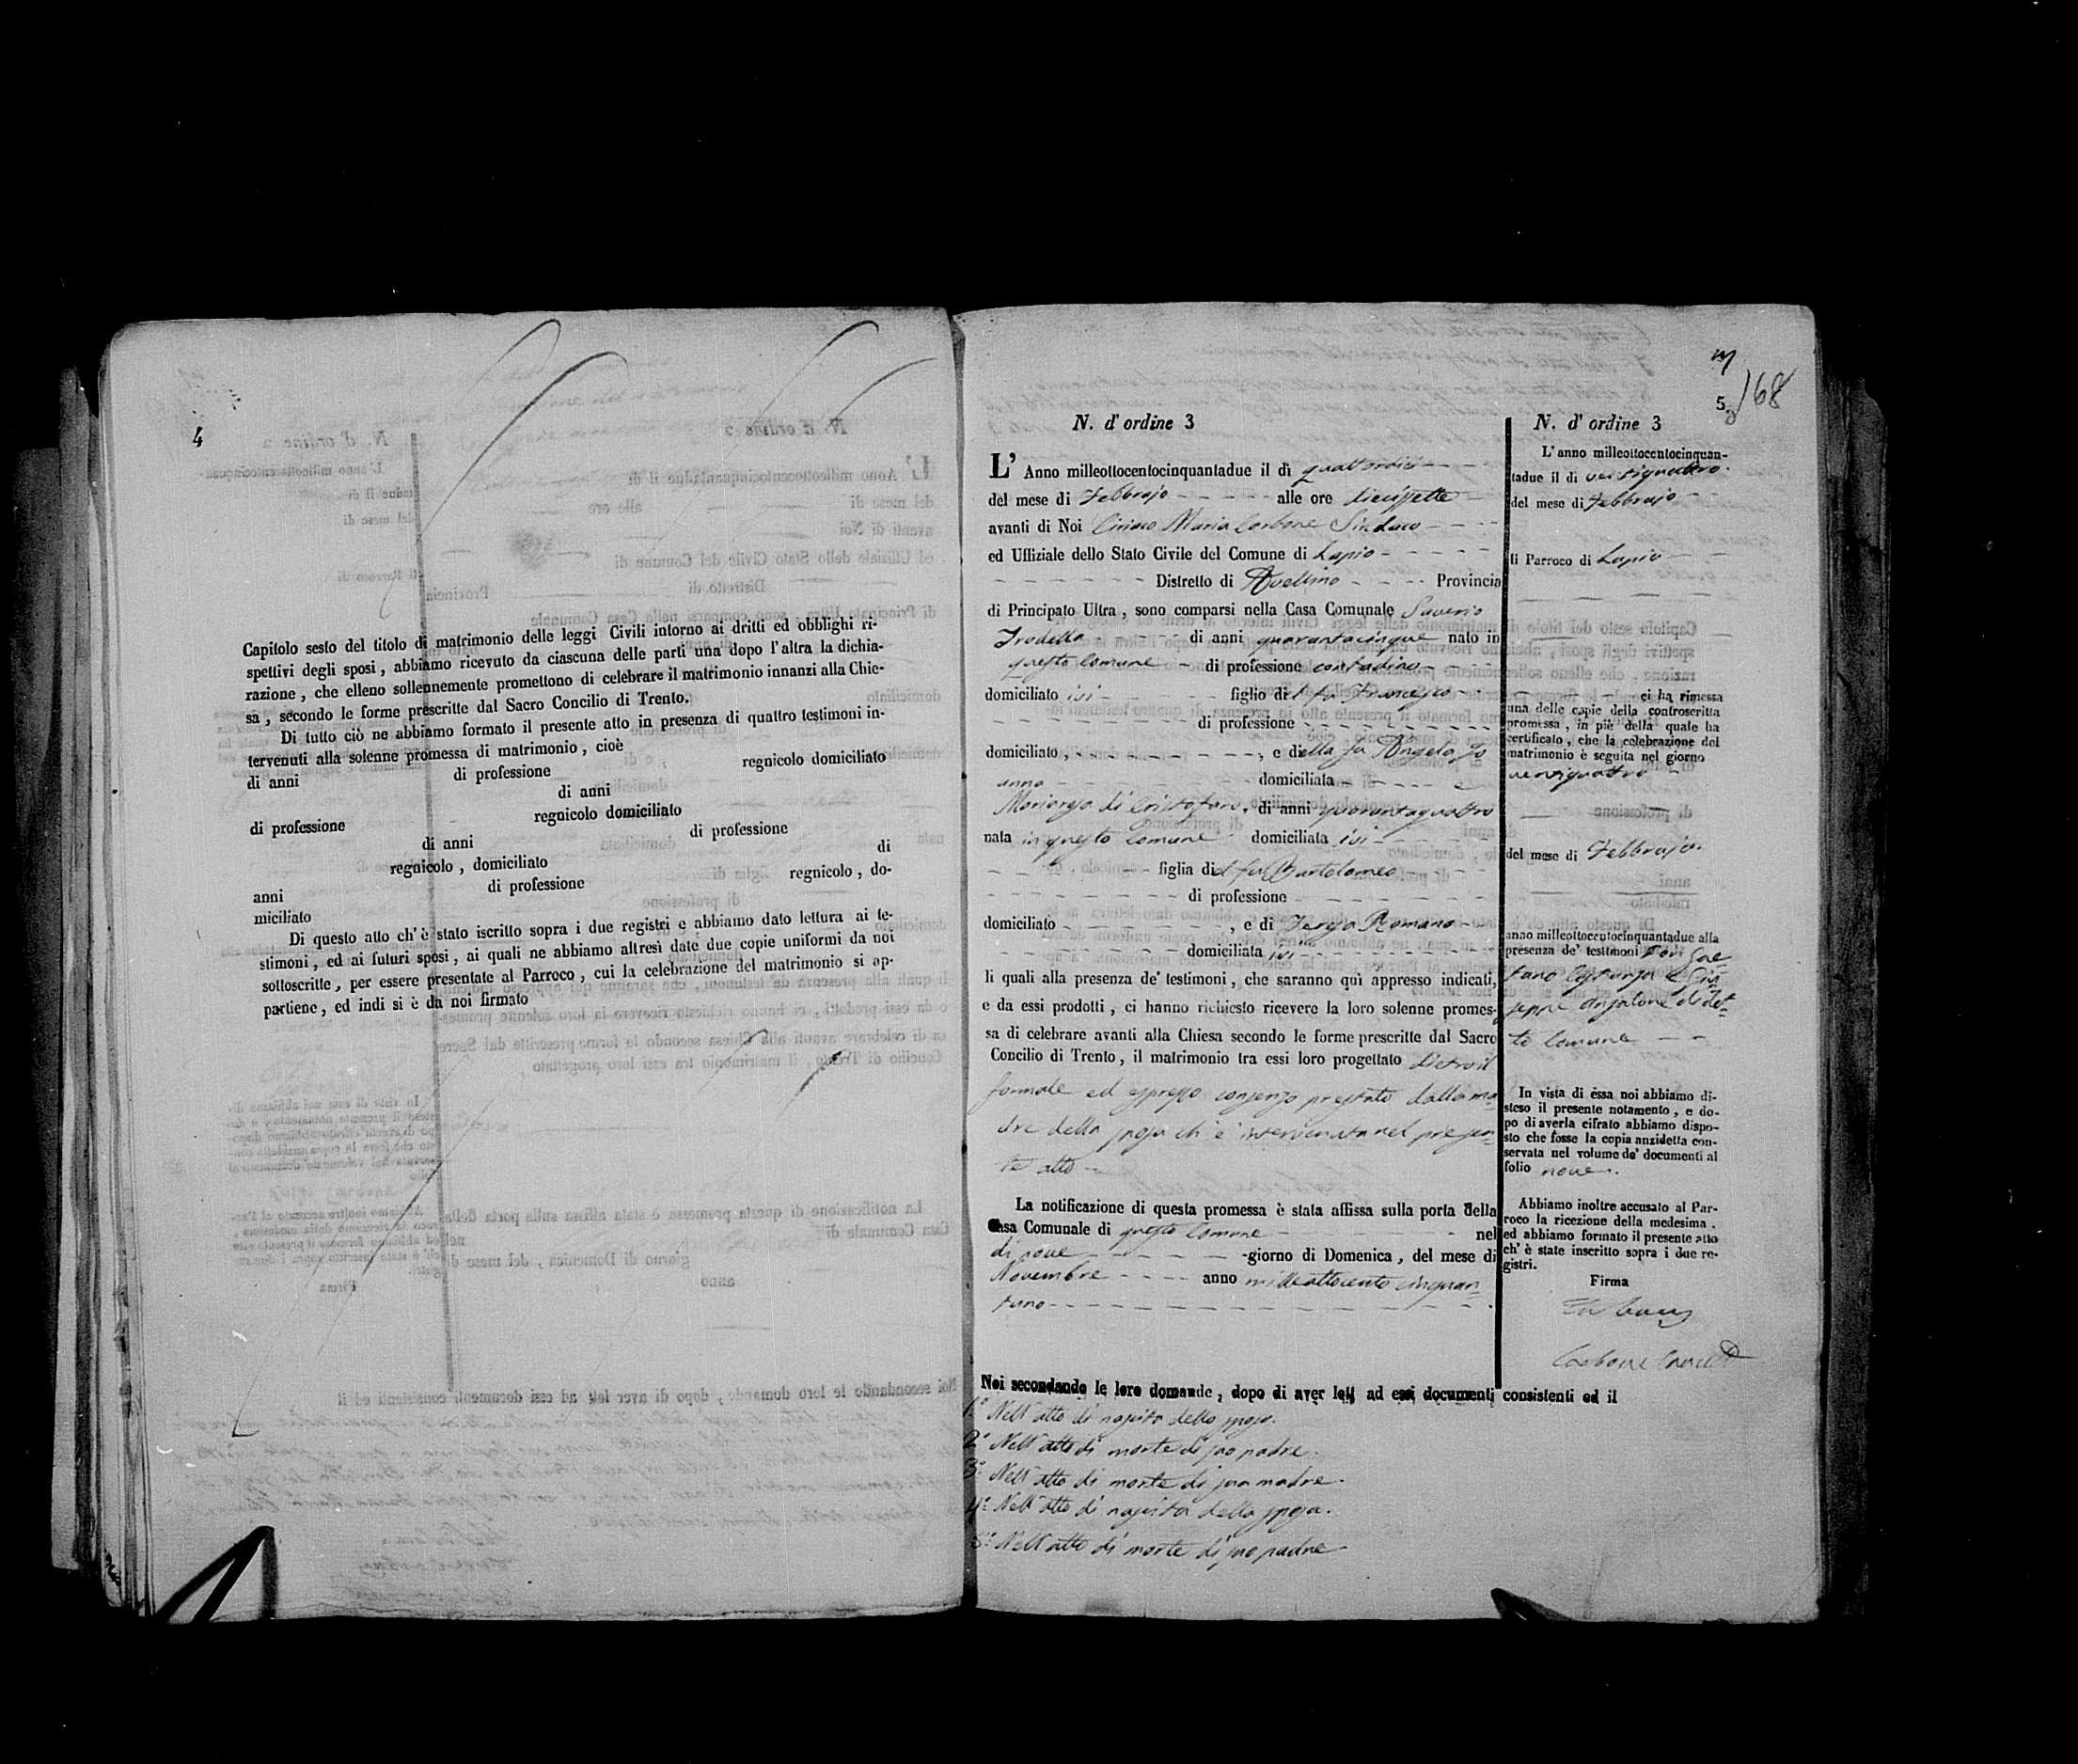 4
Capitolo sesto del titolo di matrimonio delle leggi Civili intorno ai dritti ed obblighi ri-
spettivi degli sposi, abbiamo ricevuto da ciascuna delle parti una dopo l'altra la dichia-
razione, che elleno sollennemente promettono di celebrare il matrimonio innanzi alla Chie-
sa, secondo le forme prescritte dal Sacro Concilio di Trento.
Di tutto ciò ne abbiamo formato il presente atto in presenza di quattro testimoni in-
tervenuti alla solenne promessa di matrimonio, cioè
di anni di professione regnicolo domiciliato
di anni
di professione regnicolo domiciliato
di anni di professione
regnicolo, domiciliato di
anni di professione regnicolo, do-
miciliato
Di questo atto ch'è stato iscritto sopra i due registri e abbiamo dato lettura ai te-
stimoni, ed ai futuri sposi, ai quali ne abbiamo altresì date due copie uniformi da noi
sottoscritte, per essere presentate al Parroco, cui la celebrazione del matrimonio si ap-
partiene, ed indi si è da noi firmato
5
168
N. d'ordine 3
L'Anno milleottocentocinquantadue il dì quattordici
del mese di Febbrajo alle ore diecissette
avanti di Noi Ciriaco Maria Carbone Sindaco
ed Uffiziale dello Stato Civile del Comune di Lapio
Distretto di Avellino Provincia
di Principato Ultra, sono comparsi nella Casa Comunale Saverio
di anni quarantacinque nato in
questo Comune di professione contadino
domiciliato ivi figlio di l fu Francesco
di professione
domiciliato, , e della fu Angela Jo
anno domiciliata e
Mariarosa di Cristofaro, di anni quarantaquattro
nata in questo comune domiciliata ivi
figlia del fu Bartolomeo
di professione
domiciliato , e di Teresa Romano
domiciliata ivi
li quali alla presenza de' testimoni, che saranno quì appresso indicati,
e da essi prodotti, ci hanno richiesto ricevere la loro solenne promes-
sa di celebrare avanti alla Chiesa secondo le forme prescritte dal Sacro
Concilio di Trento, il matrimonio tra essi loro progettato dietro il
formale ed espresso consenso prestato dalla ma-
dre della sposa ch'è intervenuta nel presen-
te atto
La notificazione di questa promessa è stata affissa sulla porta della
Casa Comunale di questo Comune nel
dì nove giorno di Domenica, del mese di
Novembre anno milleottocento cinquan-
tuno
Noi secondando le loro domande, dopo di aver lett ad essi documenti consistenti ed il
1.° Nell'atto di nascita dello sposo.
2.° Nell'atto di morte di suo padre.
3.° Nell'atto di morte di sua madre.
4.° Nell'atto di nascita della sposa.
5.° Nell'atto di morte di suo padre
N. d'ordine 3
L'anno milleottocentocinquan-
tadue il dì ventiquattro
del mese di Febbrajo
Il Parroco di Lapio
ci ha rimessa
una delle copie della controscritta
promessa, in piè della quale ha
certificato, che la celebrazione del
matrimonio è seguita nel giorno
ventiquattro
del mese di Febbrajo
anno milleottocentocinquantadue alla
presenza de' testimoni Don Gae
tano Costanza e Giu
seppe di det-
to Comune
In vista di essa noi abbiamo di-
steso il presente notamento, e do-
po di averla cifrato abbiamo dispo-
sto che fosse la copia anzidetta con-
servata nel volume de' documenti al
folio nove.
Abbiamo inoltre accusato al Par-
roco la ricezione della medesima,
ed abbiamo formato il presente atto
ch'è stato inscritto sopra i due re-
gistri.
Firma
Carbone